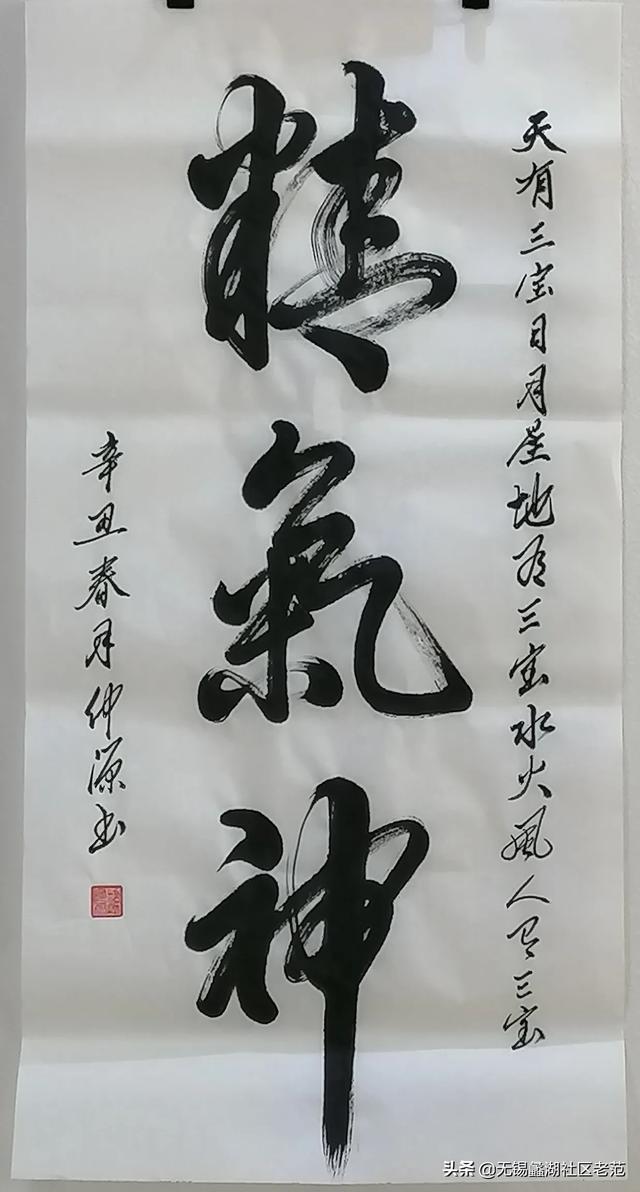 天有三宝日月星地有三宝水火風人有三宝
精氣神
辛丑春月仲源书
头条 @无锡蠡湖社区老范